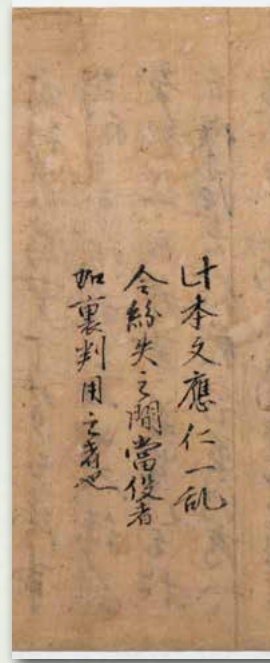 此本文應仁一乱
令紛失之間當役者
加裏判用之者也